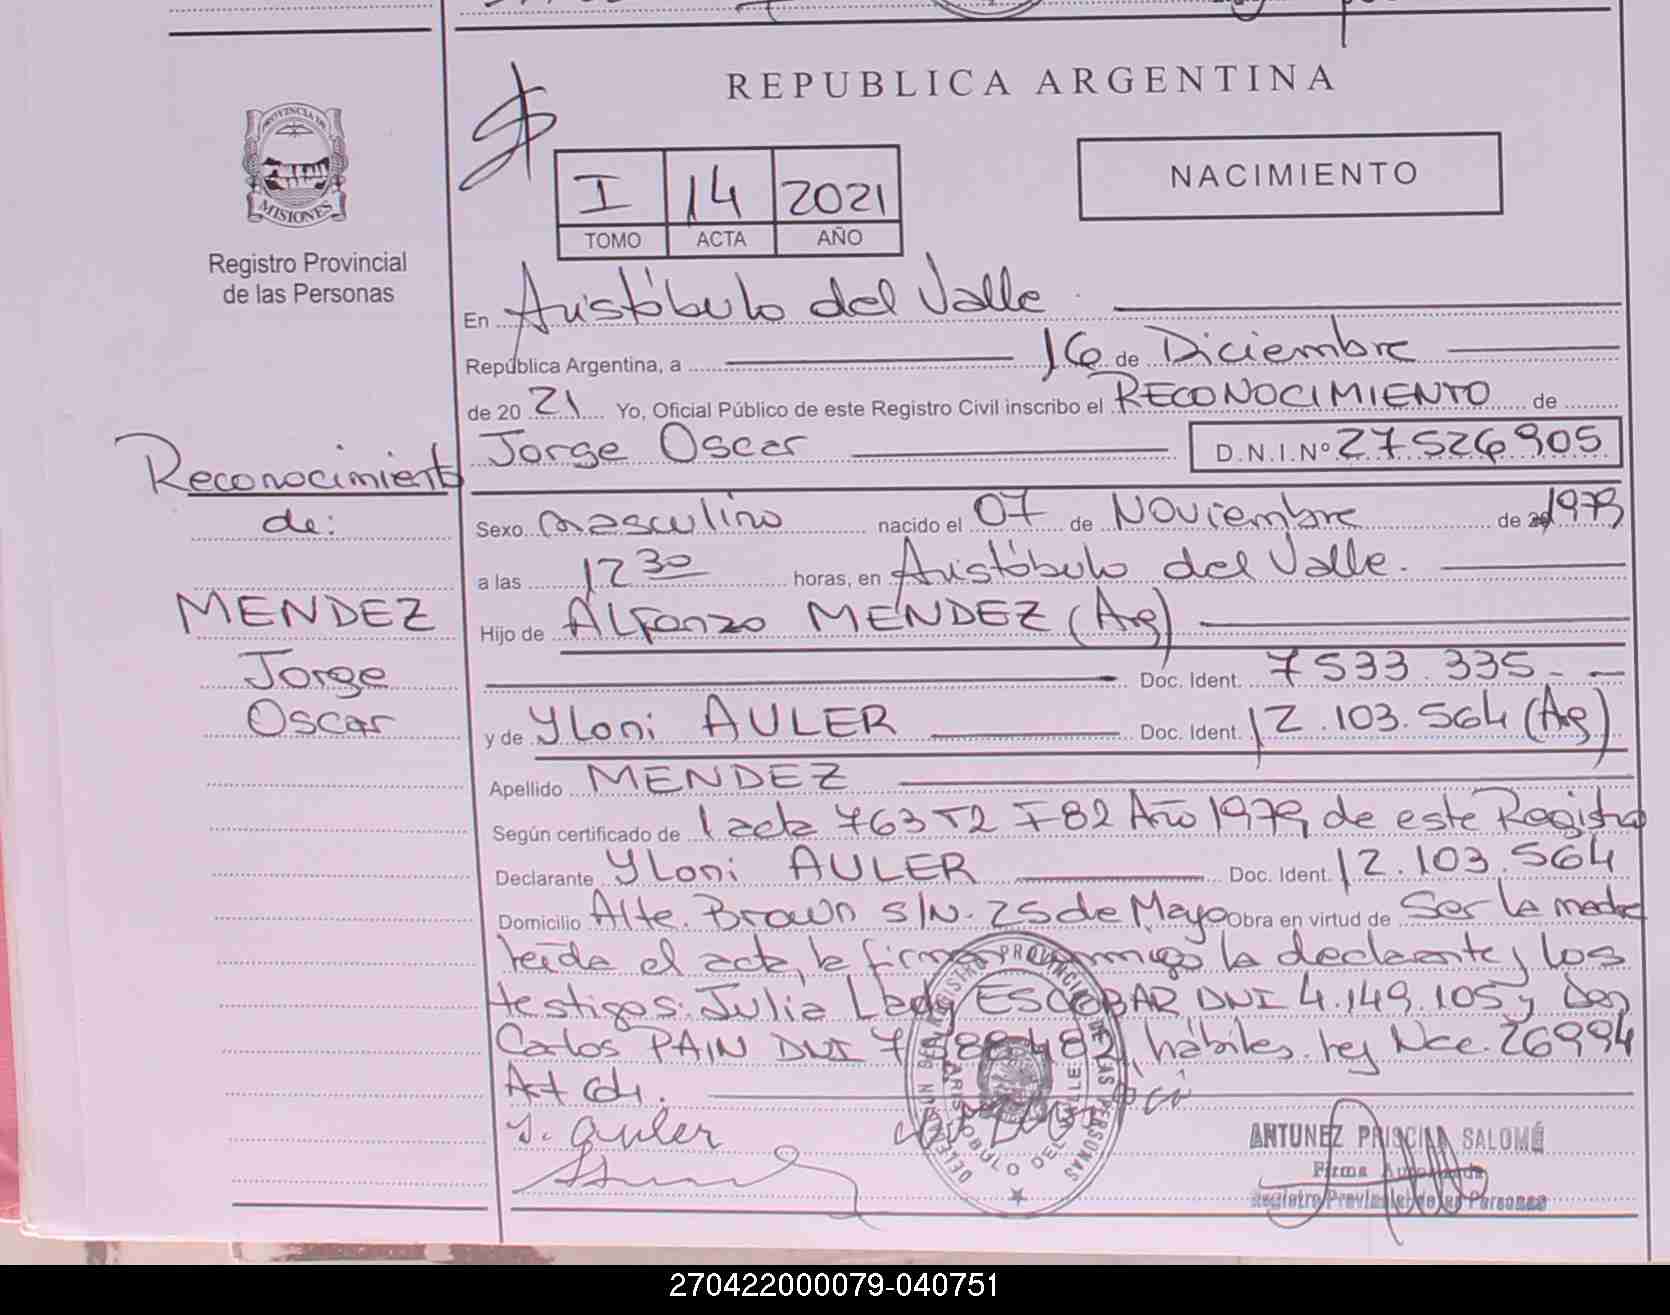 REPUBLICA ARGENTINA
PROVINCIA DE
MISIONES
Registro Provincial
de las Personas
I 14 2021
TOMO ACTA AÑO
NACIMIENTO
En Aristóbulo del Valle
República Argentina, a 16 de Diciembre
de 20 21 Yo, Oficial Público de este Registro Civil inscribo el RECONOCIMIENTO de
Jorge Oscar D.N.I.Nº 27526905
Reconocimiento
de:
MENDEZ
Jorge
Oscar
Sexo masculino nacido el 07 de Noviembre de 1979
a las 12 30 horas, en Aristóbulo del Valle.
Hijo de ALFonzo MENDEZ (Arg)
Doc. Ident. 7533.335.-
y de Yloni AULER Doc. Ident. 12.103.564 (Arg)
Apellido MENDEZ
Según certificado de acta 763 T2 F82 Año 1979, de este Registro
Declarante Yloni AULER Doc. Ident. 12.103.564
Domicilio Alte. Brown s/N. 25 de Mayo Obra en virtud de Ser la madre
leída el acta, la firma conmigo la declarante y los
testigos: Julia Lady ESCOBAR DNI 4.149.105 y Don
Carlos PAIN DNI hábiles. ley Nac. 26994
Art
Y. Auler
ANTUNEZ PRISCILA SALOMÉ
Firma Autorizada
Registro Provincial de las Personas
270422000079-040751